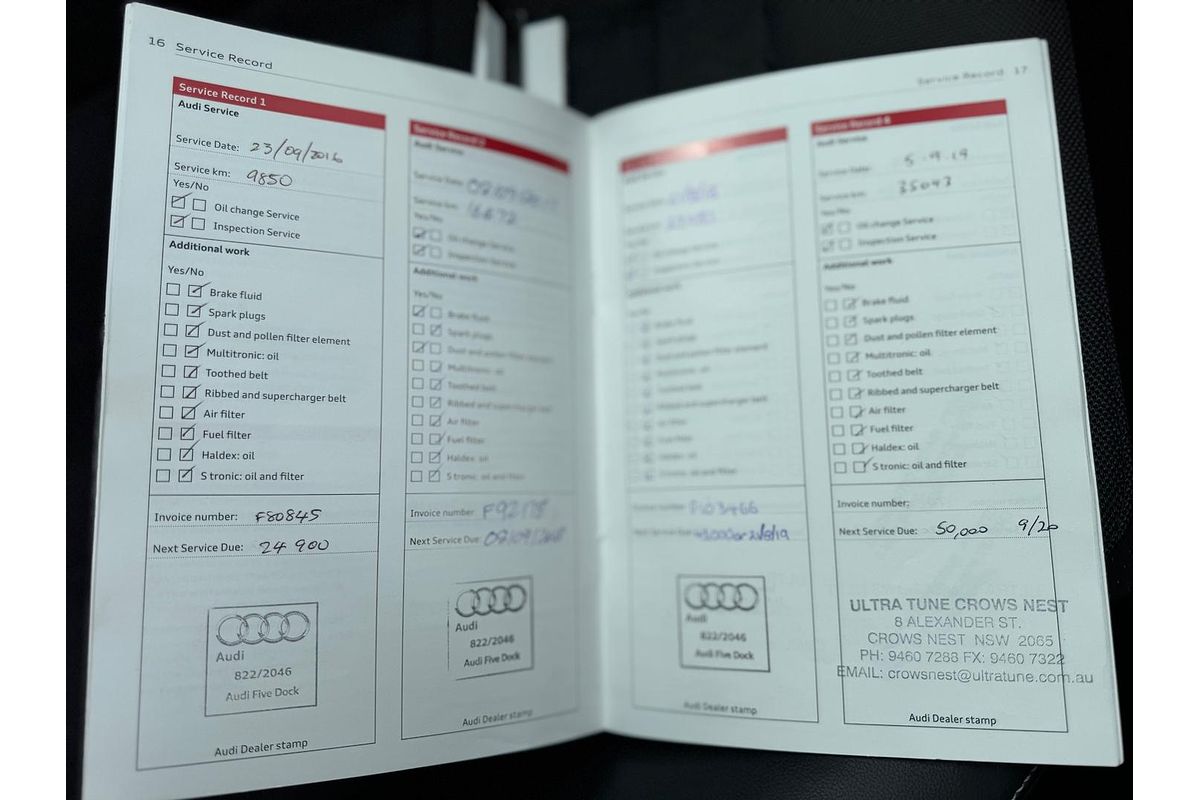 16 Service Record
Service Record 1
Audi Service
Service Date: 23/09/2016
Service km: 9850
Yes/No
Oil change Service
Inspection Service
Additional work
Yes/No
Brake fluid
Spark plugs
Dust and pollen filter element
Multitronic: oil
Toothed belt
Ribbed and supercharger belt
Air filter
Fuel filter
Haldex: oil
S tronic: oil and filter
Invoice number: F80845
Next Service Due: 24 900
Audi
822/2046
Audi Five Dock
Audi Dealer stamp
Service Record 2
Audi Service
Service Date:
Service km:
Yes/No
Oil change Service
Inspection Service
Additional work
Yes/No
Brake fluid
Spark plugs
Dust and pollen filter element
Multitronic: oil
Toothed belt
Ribbed and supercharger belt
Air filter
Fuel filter
Haldex: oil
S tronic: oil and filter
Invoice number:
Next Service Due:
Audi
822/2046
Audi Five Dock
Audi Dealer stamp
Service Record 17
Additional work
Brake fluid
Dust and pollen filter element
Multitronic: oil
Toothed belt
Ribbed and supercharger belt
Air filter
Fuel filter
Haldex: oil
S tronic: oil and filter
Invoice number: F103466
Next Service Due:
Audi
822/2046
Audi Five Dock
Audi Dealer stamp
Service Record 4
Audi Service
Service Date: 5.9.19
Service km: 35043
Yes/No
Oil change Service
Inspection Service
Additional work
Yes/No
Brake fluid
Spark plugs
Dust and pollen filter element
Multitronic: oil
Toothed belt
Ribbed and supercharger belt
Air filter
Fuel filter
Haldex: oil
S tronic: oil and filter
Invoice number:
Next Service Due: 50,000 9/20
ULTRA TUNE CROWS NEST
8 ALEXANDER ST.
CROWS NEST NSW 2065
PH: 9460 7288 FX: 9460 7322
EMAIL: crowsnest@ultratune.com.au
Audi Dealer stamp